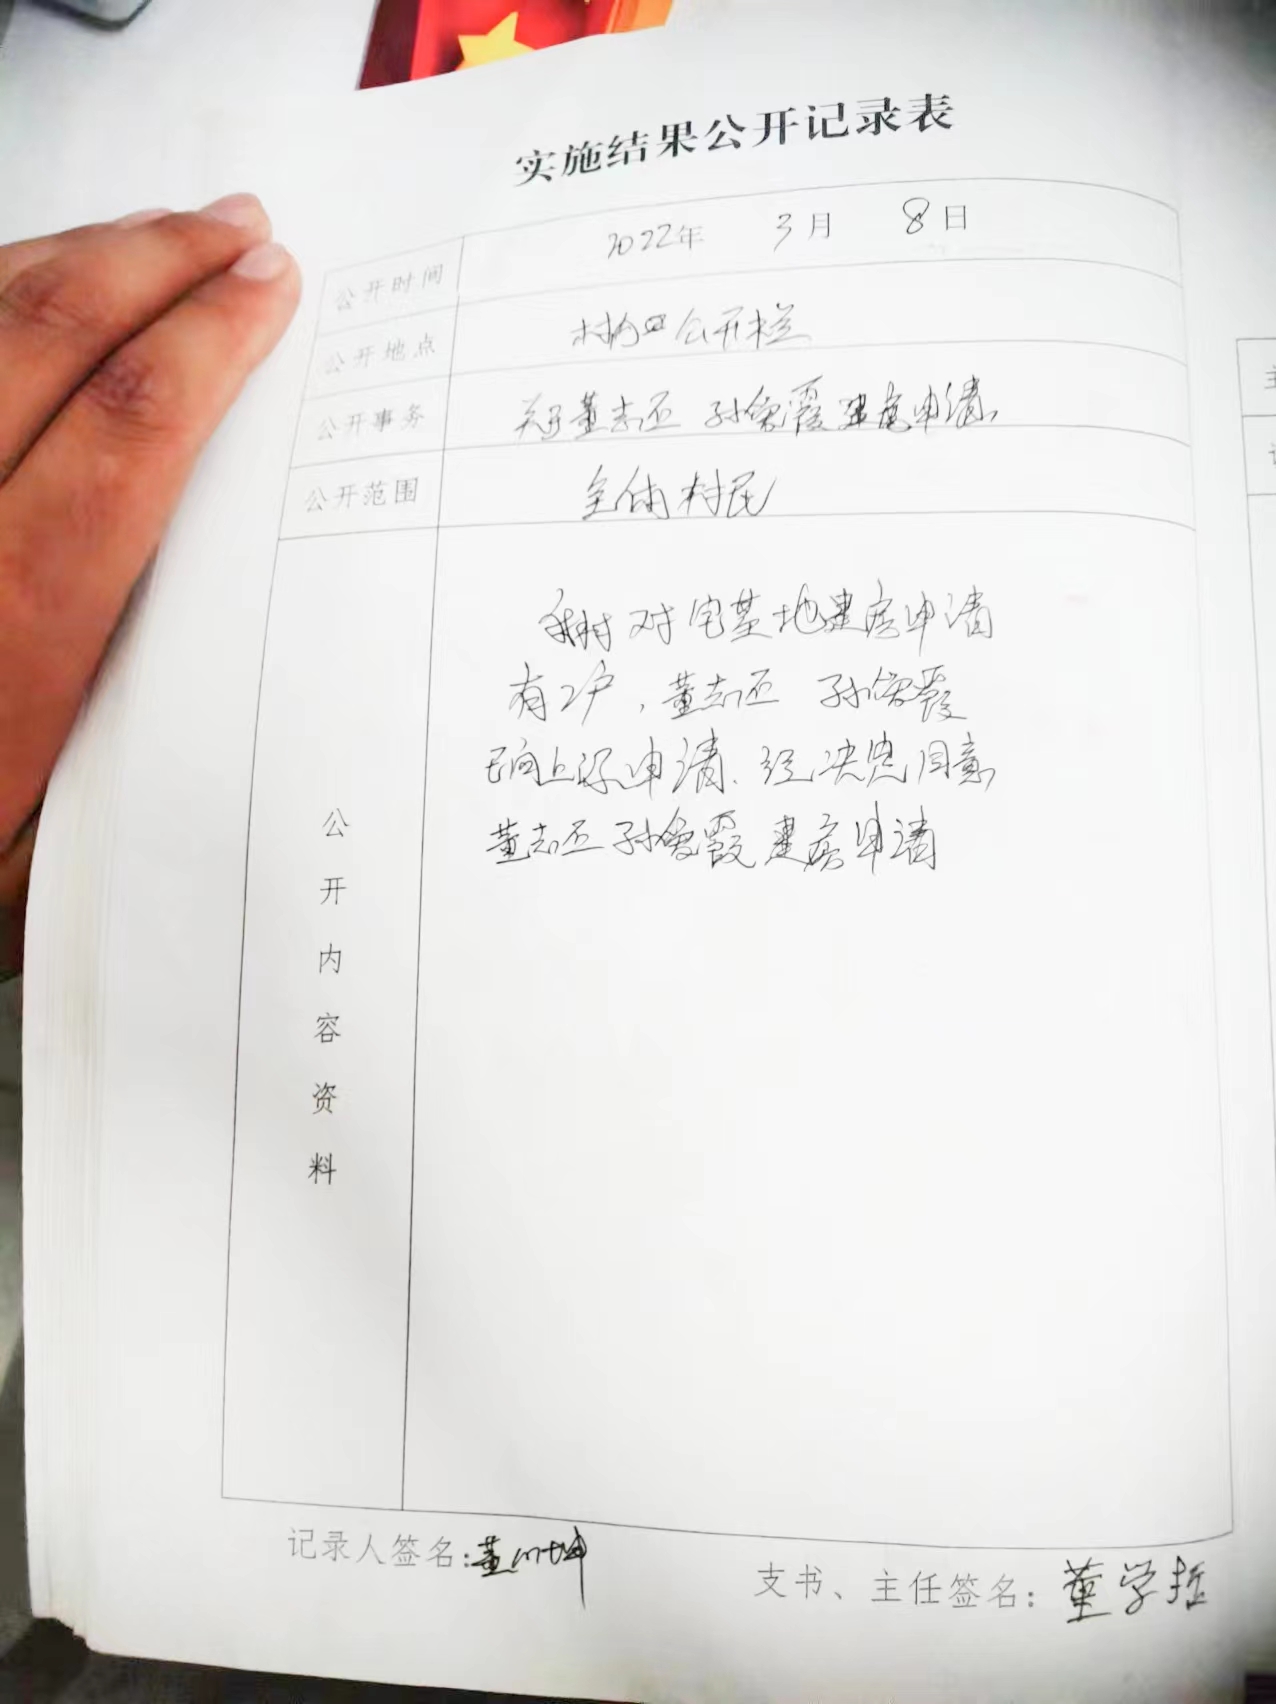 实施结果公开记录表
公开时间 2022年 3月 8日
公开地点 村内公开栏
公开事务 关于董志丕 孙俊霞建房申请
公开范围 全体村民
公开内容资料
我村对宅基地建房申请
有2户，董志丕 孙俊霞
已向上级申请、经决定同意
董志丕孙俊霞建房申请
记录人签名：董小坤
支书、主任签名：董学哲